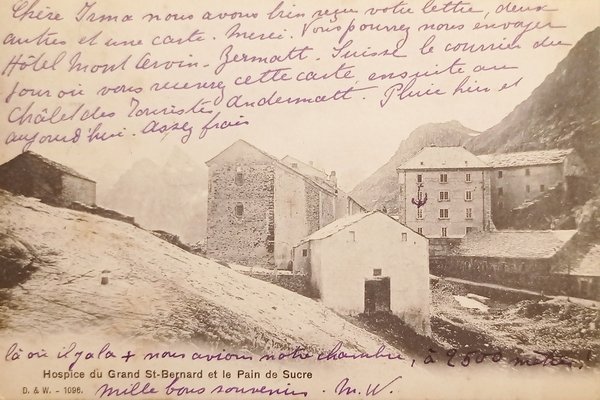 Chère Irma nous avons bien reçu votre lettre, deux
autres et une carte. Merci. Vous pourrez nous envoyer
Hôtel Mont Cervin. Zermatt. Suisse le courrier du
jour où vous recevrez cette carte, ensuite au
Châlet des Touristes Andermatt. Pluie hier et
aujourd'hui. Assez frais
là où il y a la + nous avions notre chambre, à 2500 mètres!
Hospice du Grand St-Bernard et le Pain de Sucre
D. & W. - 1096.
mille bons souvenirs. M. W.